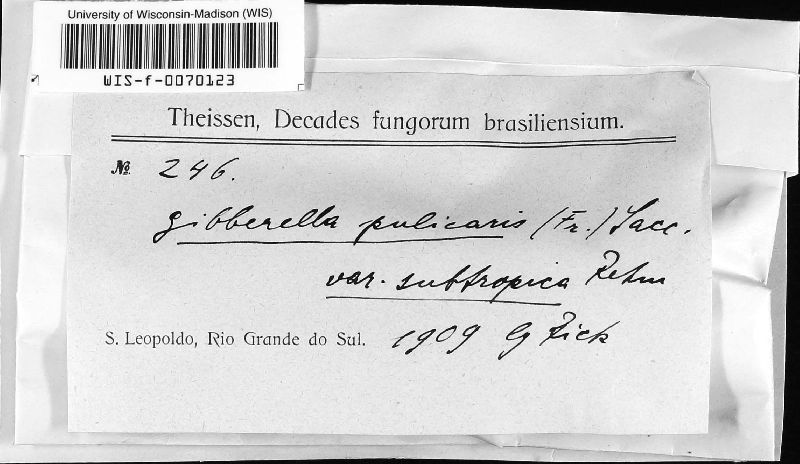 University of Wisconsin-Madison (WIS)
WIS-f-0070123
Theissen, Decades fungorum brasiliensium.
№ 246.
Gibberella pulicaris (Fr.) Sacc.
var. subtropica Rehm
S. Leopoldo, Rio Grande do Sul. 1909 lg Rick